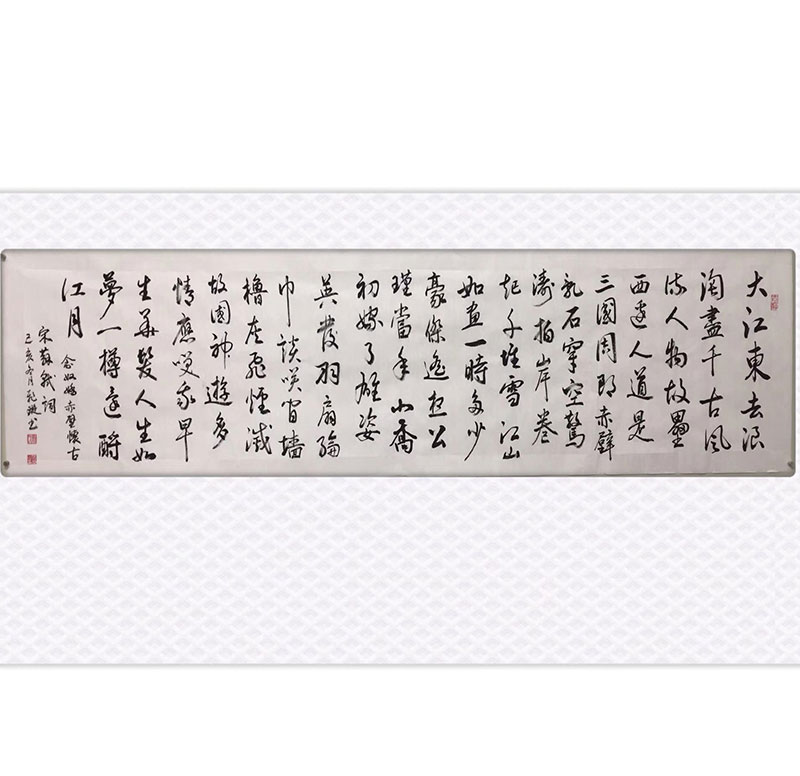 大江東去浪
淘盡千古風
流人物故壘
西邊人道是
三國周郎赤壁
亂石穿空驚
濤拍岸卷
起千堆雪江山
如畫一時多少
豪傑遙想公
瑾當年小喬
初嫁了雄姿
英發羽扇綸
巾談笑間墻
櫓灰飛煙滅
故國神遊多
情應笑我早
生華髮人生如
夢一樽還酹
江月
念奴嬌赤壁懷古
宋蘇軾詞
己亥冬月